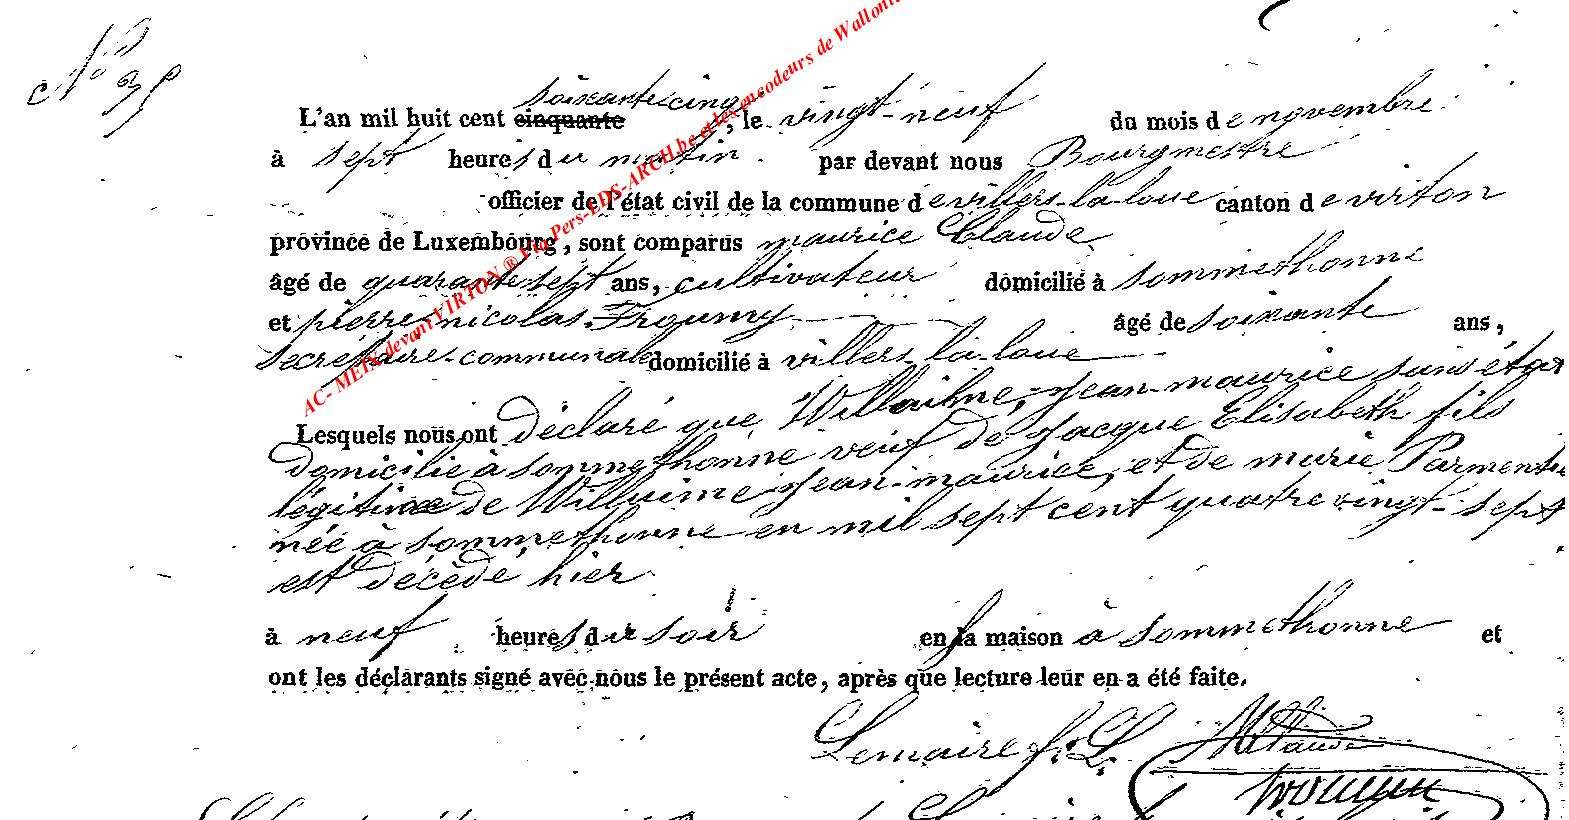 N° 35
soixante cinq
L'an mil huit cent cinquante, le vingt-neuf du mois de novembre
à sept heures du matin. par devant nous Bourgmestre
officier de l'état civil de la commune de villers-la-loue canton de virton
province de Luxembourg, sont comparus maurice Claude
âgé de quarante sept ans, cultivateur domicilié à sommethonne
et pierre-nicolas-Froumy âgé de soixante ans,
secrétaire-communal domicilié à villers-la-loue
Lesquels nous ont déclaré que Willaime, Jean-maurice sans état
domicilié à sommethonne veuf de Jacque Elisabeth fils
légitime de Willaime Jean-maurice, et de marie Parmentier
née à sommethonne en mil sept cent quatre vingt-sept
est décédé hier
à neuf heures du soir en sa maison à sommethonne et
ont les déclarants signé avec nous le présent acte, après que lecture leur en a été faite.
Lemaire f. L. M Claude
Froumy
AC- METX devant VIRTON ® Fra Pers-EDS-ARCH.be et les encodeurs de Wallonie